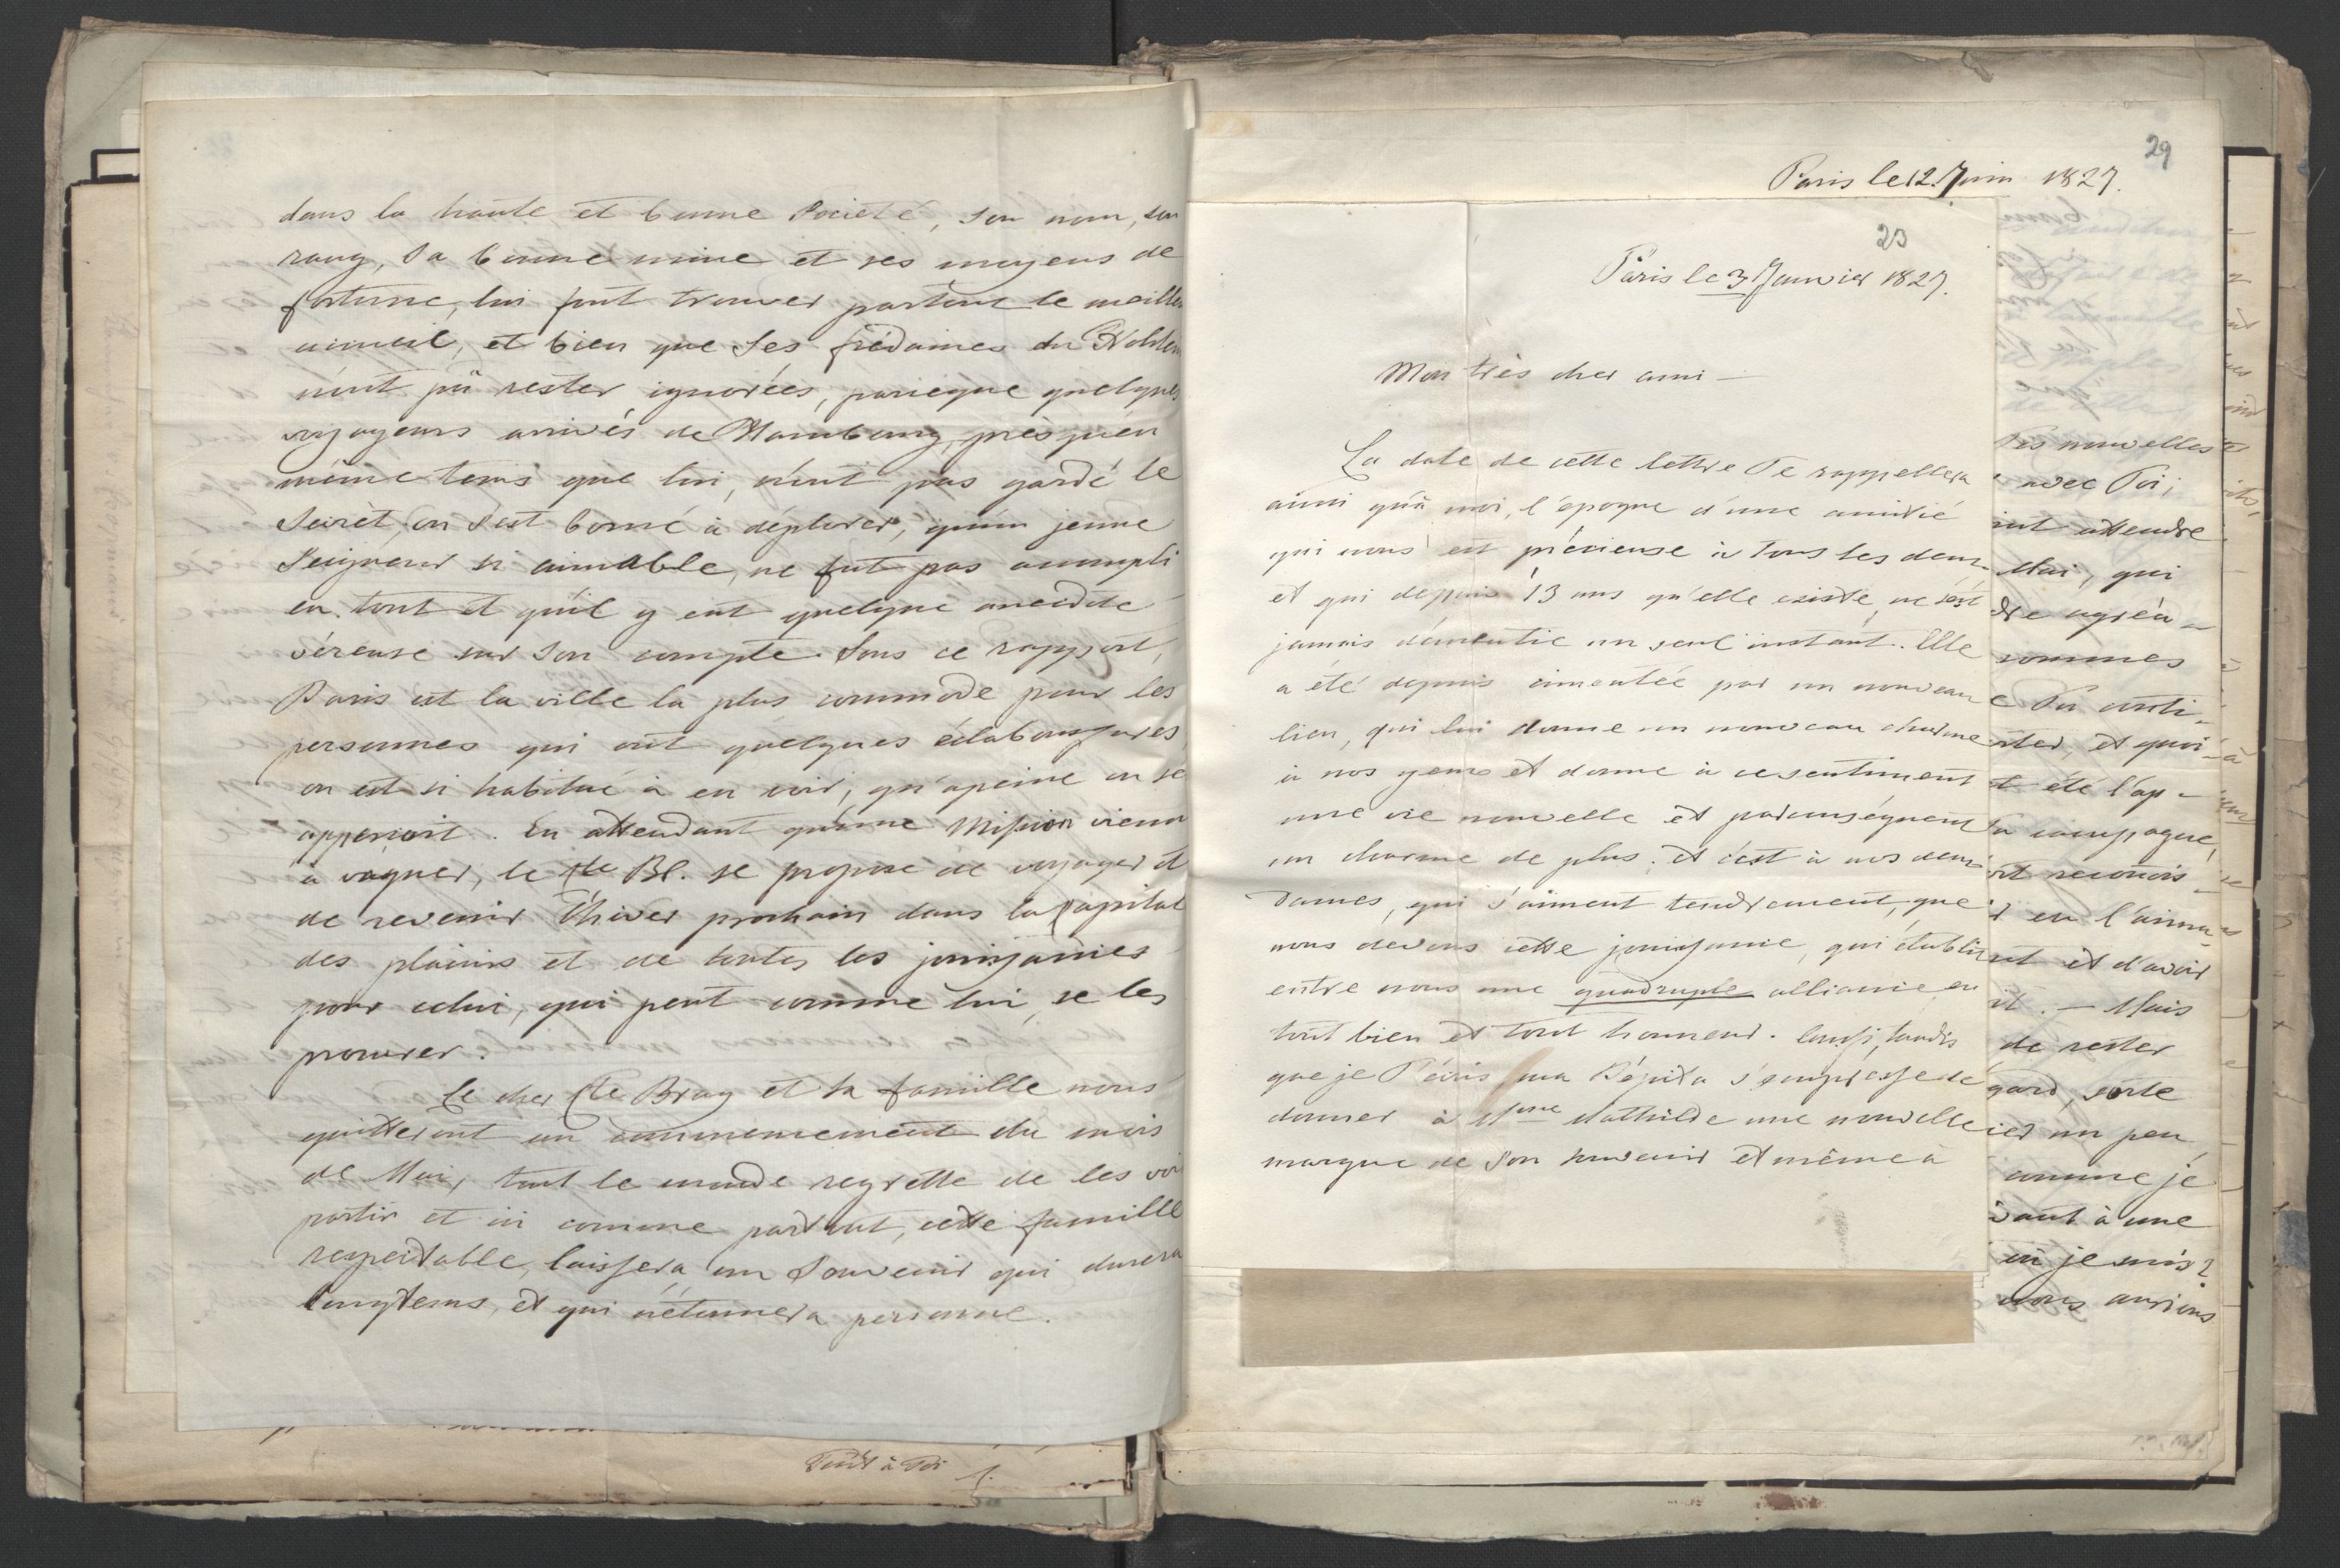 dans la haute et bonne Société, son nom, son
rang, sa bonne mine et ses moyens de
fortune, lui font trouver partout le meilleu
accueil, et bien que ses frédaines du Holstein
n'ont pû rester ignorées, parceque quelques
voyageurs arrivés de Hambourg, presqu'en
même tems que lui, n'ont pas gardé le
secrèt, on s'est borné à déplorer, qu'un jeune
Seigneur si aimable, ne fut pas accompli
en tout et qu'il y eut quelque anecdote
véreuse sur son compte. Sous ce rapport,
Paris est la ville la plus commode pour les
personnes qui ont quelques éclaboussures,
on est si habitué à en voir, qu'apeine on se
apperçoit. En attendant qu'une Mission vienn
à vaquer, le Cte Bl. se propose de voyager et
de revenir l'hiver prochain dans la Capital
des plaisirs et de toutes les jouissances
pour celui, qui peut comme lui, se les
procurer.
Le cher Cte Bray et sa famille nous
quitteront au commencement du mois
de Mai, tout le monde regrette de les voi
partir et ici comme partout, cette famille
respectable, laissera un Souvenir qui durera
longtems, et qui n'étonnera personne.
Tout à Toi
29
Paris le 12. Juin 1827.
23
Paris le 3 Janvier 1827.
Mon très cher ami —
La date de cette lettre Te rappellera
ainsi qu'à moi, l'époque d'une amitié
qui nous est précieuse à tous les deux
et qui depuis 13 ans qu'elle existe, ne s'est
jamais démentie un seul instant. Elle
a été depuis cimentée par un nouveau
lien, qui lui donne un nouveau charme
à nos yeux et donne à ce sentiment
une vie nouvelle et parconséquent
un charme de plus. et c'est à nos deux
Dames, qui s'aiment tendrement, que
nous devons cette jouissance, qui établit
entre nous une quadruple alliance en
tout bien et tout honneur. Aussi, tandis
que je T'écris, ma Pépita s'empresse de
donner à Mme Mathilde une nouvelle
marque de son souvenir et même à
Tes nouvelles
avec Toi,
attendre
Mai, qui
agréa-
sommes
Tu anti-
et quoi-
été l'ap-
compagne,
reconois-
en l'aima-
et d'avoir
— Mais
de rester
sorte
un peu
comme je
à une
où je suis?
nous aurions